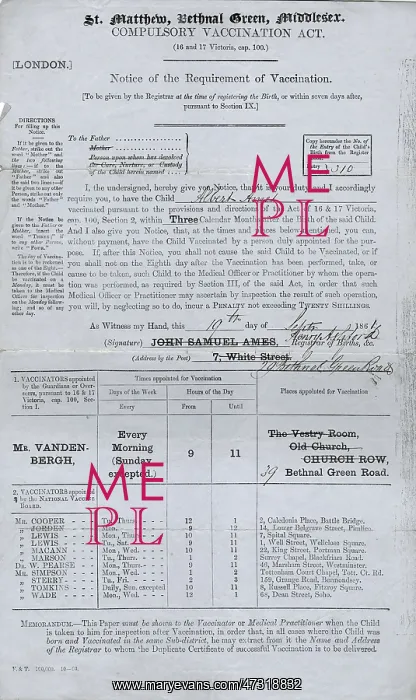 St. Matthew, Bethnal Green, Middlesex.
COMPULSORY VACCINATION ACT.
(16 and 17 Victoria, cap. 100.)
[LONDON.]
Notice of the Requirement of Vaccination.
[To be given by the Registrar at the time of registering the Birth, or within seven days after,
pursuant to Section IX.]
DIRECTIONS
For filling up this
Notice.
If it be given to the
Father, strike out the
word "Mother" and
the two following
lines:—if to the
Mother, strike out
"Father" and also the
said two lines:—if
it be given to any other
Person, strike out only
the words "Father"
and "Mother."
If the Notice be
given to the Father or
Mother, insert the
word "Yours;" if
to any other Person,
put a "Form."
To the Father
Mother
Person upon whom has devolved
the Care, Nurture, or Custody
of the Child herein named
Copy hereunder the No. of
the Entry of the Child's
Birth from the Register
310
I, the undersigned, hereby give you Notice, that it is duty and I accordingly
require you, to have the Child Albert
vaccinated pursuant to the provisions and directions of 16 & 17 Victoria,
cap. 100, Section 2, within Three Calendar Months after the Birth of the said Child.
And I also give you Notice, that, at the times and places below you can,
without payment, have the Child Vaccinated by a person duly appointed for the pur-
pose. If, after this Notice, you shall not cause the Child to be Vaccinated, or if
you shall not on the Eighth day after the Vaccination has been performed, take, or
cause to be taken, such Child to the Medical Officer or Practitioner by whom the opera-
tion was performed, as required by Section III. of the said Act, in order that such
Medical Officer or Practitioner may ascertain by inspection the result of such operation,
you will, by neglecting so to do, incur a PENALTY NOT EXCEEDING TWENTY SHILLINGS.
As Witness my Hand, this 19th day of Septr 186
(Signature) JOHN SAMUEL AMES, Registrar of Births, &c.
(Address by the Post) 7, White Street.
Bethnal Green Road
1. VACCINATORS appointed
by the Guardians or Over-
seers, pursuant to 16 & 17
Victoria, cap. 100, Sec-
tion 1.
Times appointed for Vaccination
Days of the Week
Hours of the Day
Every
From
Until
Places appointed for Vaccination
MR. VANDEN-
BERGH,
Every
Morning
(Sunday
excepted.)
9
11
The Vestry Room,
Old Church,
CHURCH ROW,
39 Bethnal Green Road.
2. VACCINATORS appointed
by the NATIONAL VACCINE
BOARD.
MR. COOPER Tu., Thurs. 12 1 2, Caledonia Place, Battle Bridge.
" JORDEN Mon., 9 12 14, Lower Belgrave Street, Pimlico.
" LEWIS Mon., Thurs. 10 11 7, Spital Square.
" LEWIS Tu., Sat. 9 11 1, Well Street, Wellclose Square.
" MACANN Mon., Wed. 10 11 22, King Street, Portman Square.
" MARSON Tu., Thur. 1 2 Surrey Chapel, Blackfriars Road.
DR. W. PEARSE Mon., Thurs. 9 11 46, Marsham Street, Westminster.
MR. SIMPSON Mon., Wed. 1 2 Tottenham Court Chapel, Tott. Ct. Rd.
" STERRY Tu., Fri. 2 3 159, Grange Road, Bermondsey.
" TOMKINS Daily, Sun. excepted 10 11 8, Russell Place, Fitzroy Square.
" WADE Mon., Wed. 12 1 68, Dean Street, Soho.
MEMORANDUM.—This Paper must be shown to the Vaccinator or Medical Practitioner when the Child
is taken to him for inspection after Vaccination, in order that, in all cases where the Child was
born and Vaccinated in the same Sub-district, he may extract from it the Name and Address
of the Registrar to whom the Duplicate Certificate of successful Vaccination is to be delivered.
ME
PL
ME
PL
www.maryevans.com/47318832